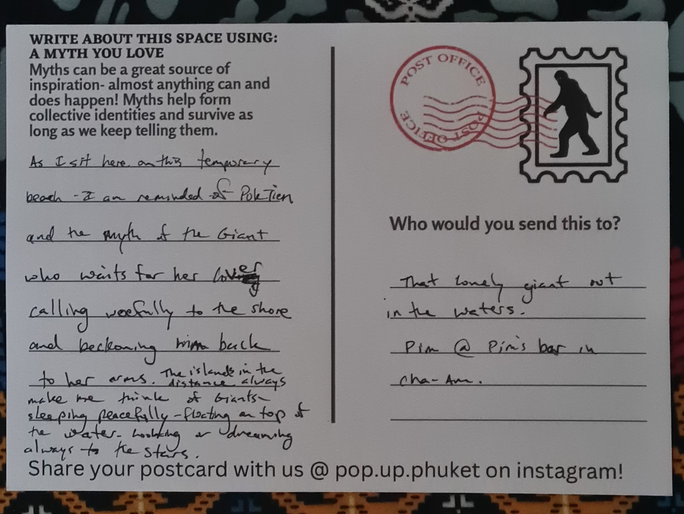 WRITE ABOUT THIS SPACE USING:
A MYTH YOU LOVE
Myths can be a great source of
inspiration- almost anything can and
does happen! Myths help form
collective identities and survive as
long as we keep telling them.
As I sit here on this temporary
beach - I am reminded of Puk Tien
and the myth of the Giant
who waits for her lover
calling woefully to the shore
and beckoning him back
to her arms. The islands in the
distance always
make me think of Giants-
sleeping peacefully - floating on top of
the water- looking or dreaming
always to the stars.
POST OFFICE
POST OFFICE
Who would you send this to?
That lonely giant out
in the waters.
Pim @ Pim's bar in
Cha-Am.
Share your postcard with us @ pop.up.phuket on instagram!